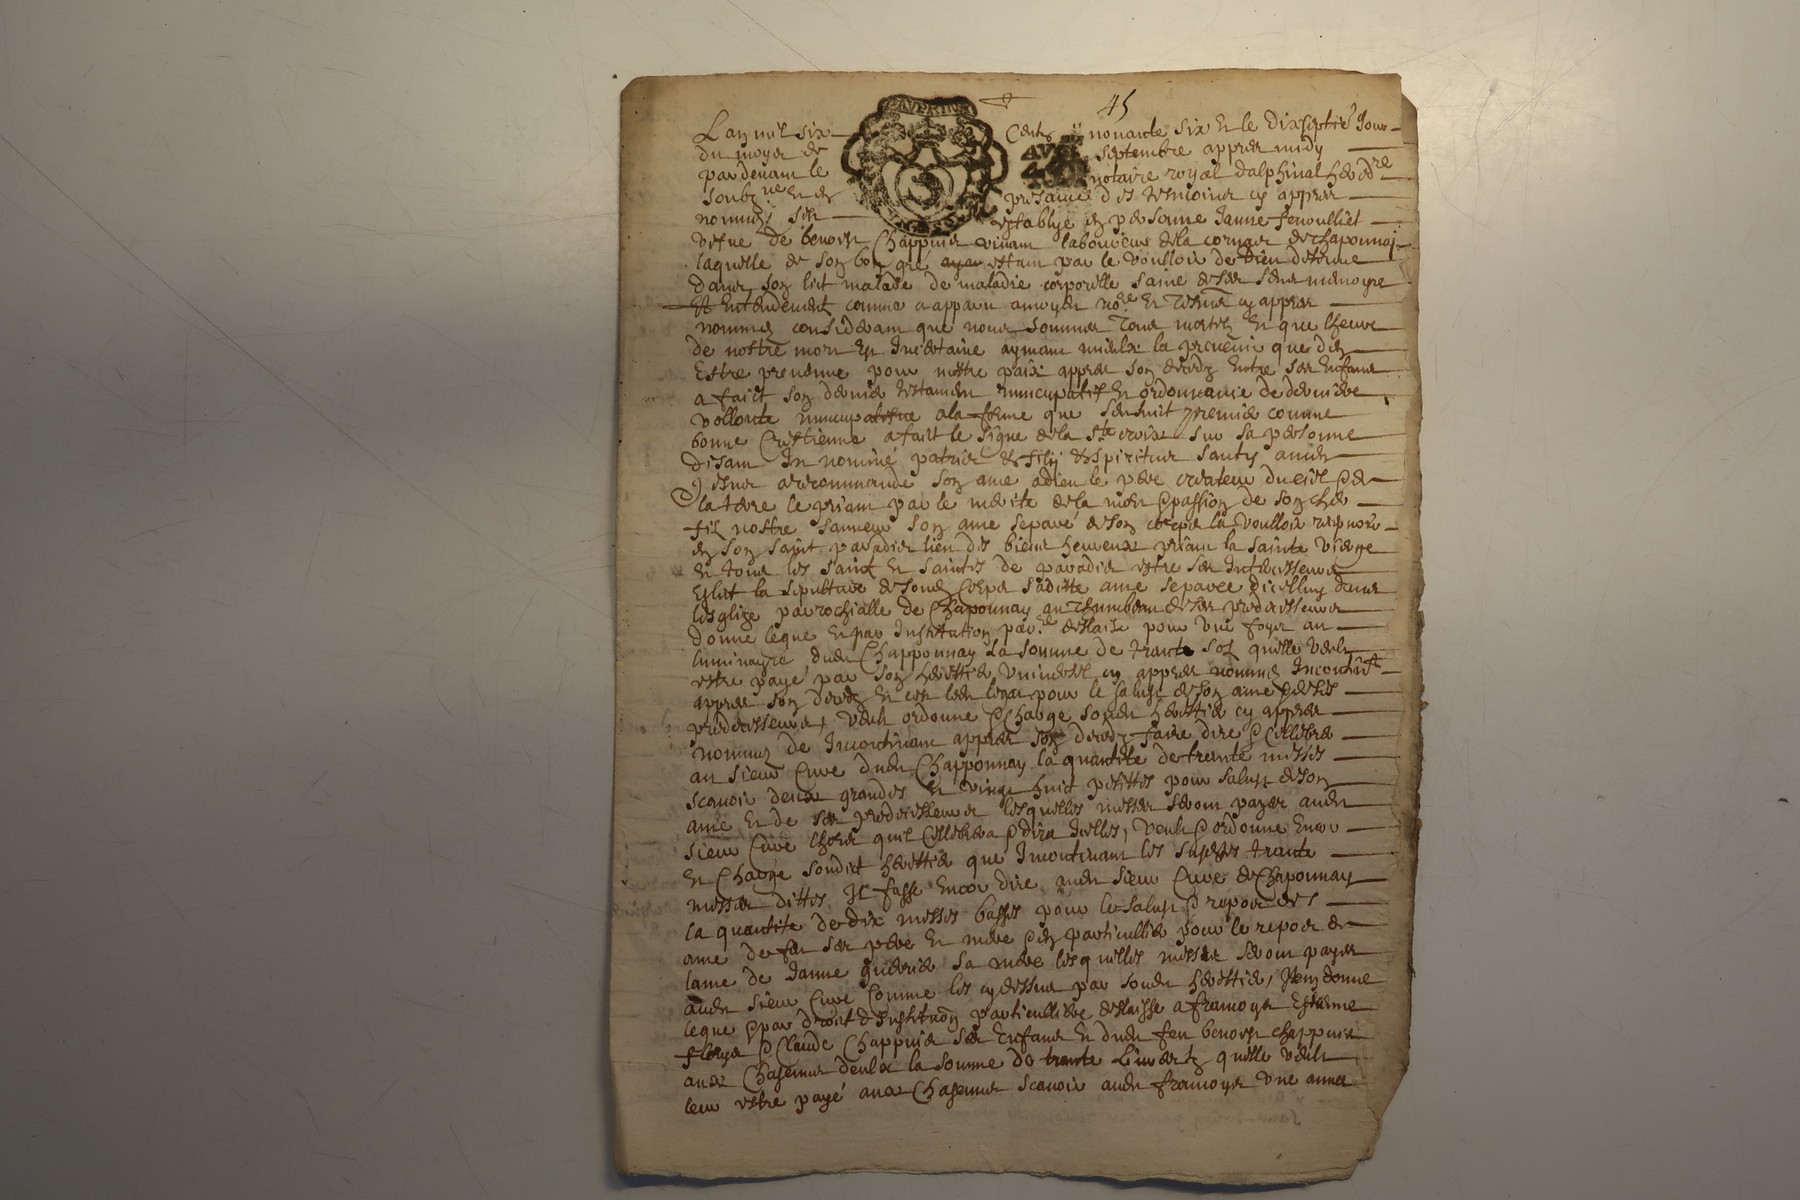 45
Lan mil six Centz nonante six et le dixseptie Jour
du moys de septembre appres midy
pardevant le notaire royal dalphinal heredre
soubzne et en presance des tesmoins cy appres
nommes sest establye en personne Janne fenoulliet
vefue de benoist Chappuis vivant laboureur de la comune de chaponnay
laquelle de son bon gré estant par le voulloir de dieu detenue
dans son lict malade de maladie corporelle saine de ses sens memoyre
et entendement comme a apparu a moyd nore et tesmoins cy appres
nommes considerant que nous sommes tous mortels et que lheure
de nostre mort est Incertaine aymant mieulx la prevenir que den
Estre prevenue pour mettre paix appres son deceds entre ses Enfans
a faict son dernier testament nuncupatif et ordonnance de derniere
vollonte nuncupative a la forme que sensuit premier comme
bonne Crestienne a faict le signe de la ste croix sur sa personne
disant In nomine patris et filij et spiritus santy amen
Jesus a recommandé son ame a dieu le pere createur du ciel et de
la terre le priant par le merite de la mort et passion de son cher
filz nostre sauveur son ame separé de son corps la voulloir recepvoir
en son saint paradis lieu des biens heureux priant la sainte vierge
et tous les saints et saintes de paradis estre ses Intercesseurs
Eslit la sepulture de sond Corps saditte ame separee dicelluy dans
lesglize parrochialle de Chaponnay au thumbeau de ses predecesseurs
donne legue et par Institution parre delaisse pour une foys au
luminayre dud Chapponnay la somme de trante solz quelle veult
estre payé par son herittier universel cy appres nommé Incontint
appres son deceds et ce led legat pour le salut de son ame et de ses
predecesseurs, veult ordonne et charge sond herittier cy appres
nommé de Incontinant appres son deceds faire dire et cellebre
au sieur Curé dud Chapponnay la quantité de trante messes
scavoir deux grandes et vingt huict petittes pour salut de son
ame et de ses predecesseurs lesquelles messes seront payes aud
sieur Curé lhors quil Cellebrera et dira Icelles, veult et ordonne Encor
et charge soudict herittier que Incontinant les susdittes trante
messes dittes Il fasse Encor dire aud sieur Curé de Chaponnay
la quantité de dix messes basses pour le salut et repos des
ame de feu ses pere et mere et en particullier pour le repos de
lame de Janne sa mere lesquelles messes seront payes
aud sieur Curé Comme les cy dessus par soud herittier, Item donne
legue et par droit dInstitution particulliere delaisse a francoys Estienne
et Claude Chappuis ses Enfans et dud feu benoist chappuis
aux Chascuns deulx la somme de trante Livres quelle veult
leur estre payé aux Chascuns scavoir aud francoys une annee